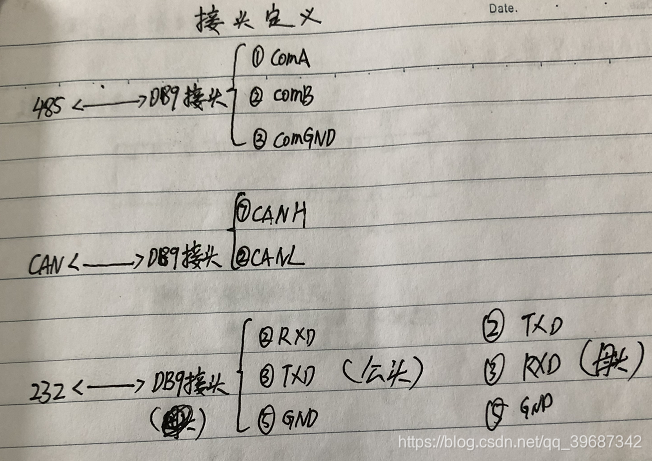 Date.
接头定义
485 <——> DB9接头
① ComA
② comB
③ ComGND
CAN <——> DB9接头
⑦ CANH
② CANL
232 <——> DB9接头
② RXD
③ TXD (公头)
⑤ GND
② TXD
③ RXD (母头)
⑤ GND
https://blog.csdn.net/qq_39687342